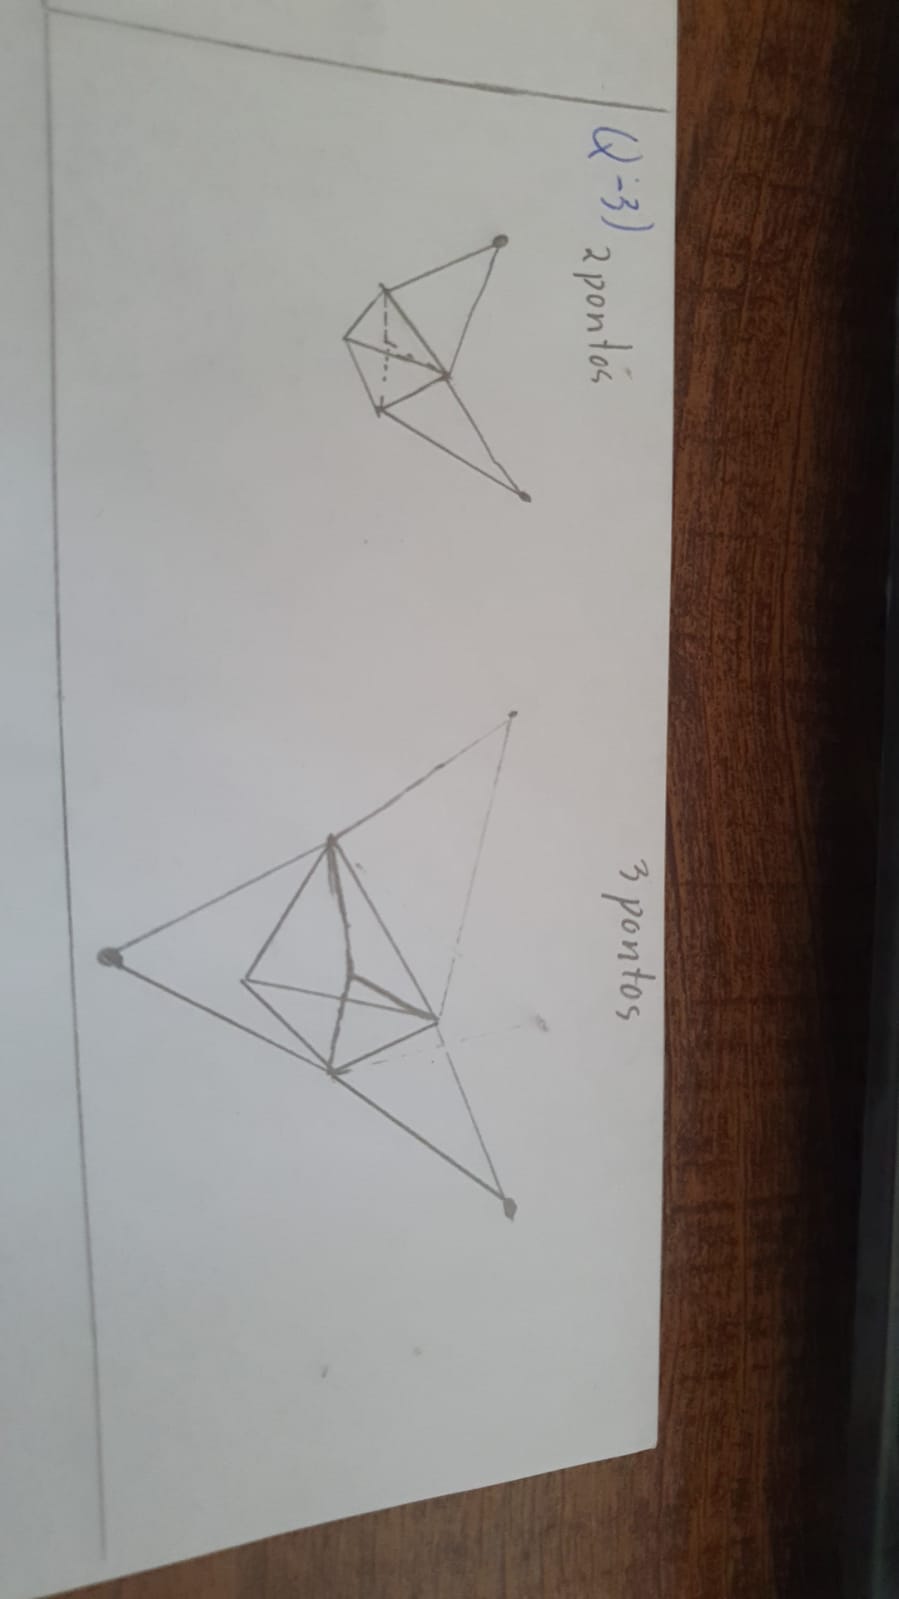 Q-3) 2 pontos
3 pontos